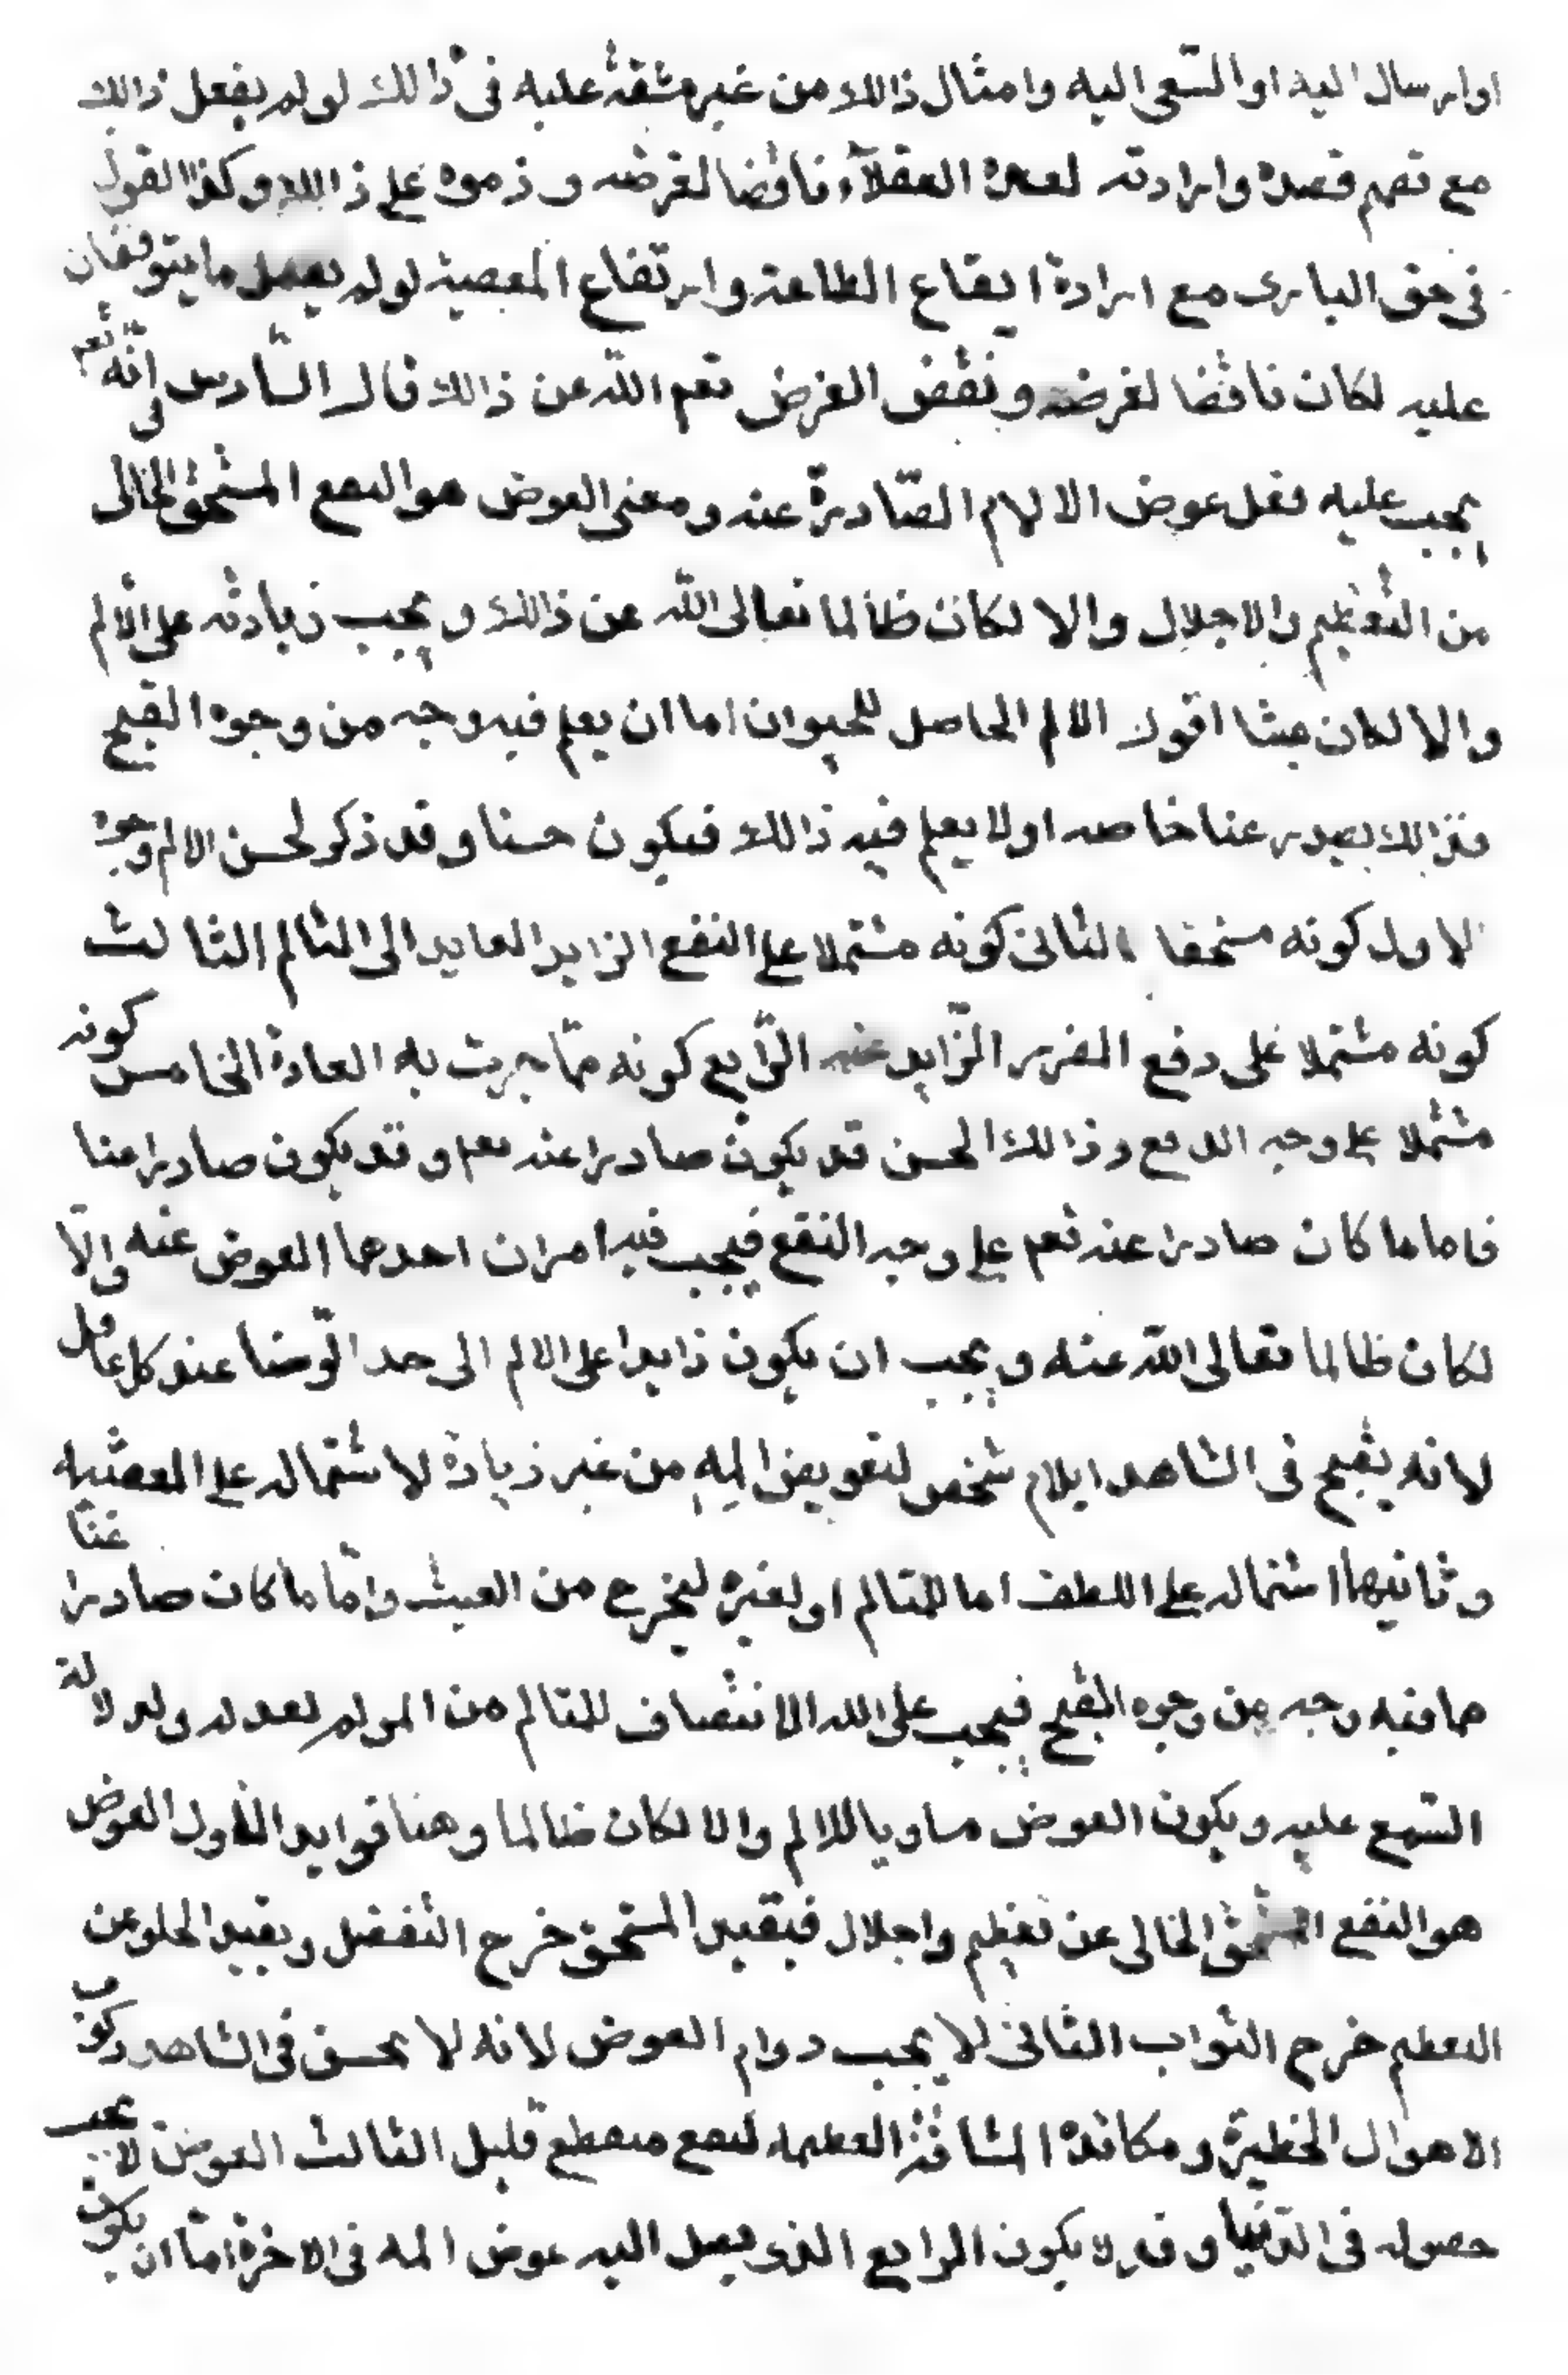 او ارسال اليه او السّعى اليه وامثال ذالك من غير مشقة عليه فى ذالك لو لم يفعل ذالك
مع تصميم قصده وارادته لعده العقلآء ناقضا لغرضه وذموه على ذالك وكذا القول
فى حق البارى مع ارادة ايقاع الطاعة وارتفاع المعصية لو لم يفعل ما يتوقفان
عليه لكان ناقضا لغرضه ونقض الغرض تعم اللّه عن ذالك قال السّادس فى انّه تعم
يجب عليه فعل عوض الالام الصّادرة عنه ومعنى العوض هو النفع المستحق الخالى
من التعظيم والاجلال والا لكان ظالما تعالى اللّه عن ذالك ويجب زيادته على الالم
والا لكان عبثا اقول الالم الحاصل للحيوان اما ان يعلم فيه وجه من وجوه القبح
فذالك يصدر عنا خاصه او لا يعلم فيه ذالك فيكون حسنا وقد ذكر لحسن الالم وجوه
الاول كونه مستحقا الثانى كونه مشتملا على النفع الزايد العايد الى التالم الثالث
كونه مشتملا على دفع الضرر الزّايد عنه الرّابع كونه ممّا جرت به العادة الخامس كونه
مشتملا على وجه الدفع وذالك الحسن قد يكون صادرا عنه تعم وقد يكون صادرا عنا
فاما ما كان صادرا عنه تعم على وجه النفع فيجب فيه امران احدهما العوض عنه والّا
لكان ظالما تعالى اللّه عنه ويجب ان يكون زايدا على الالم الى حد الرّضا عند كل عاقل
لانه يقبح فى الشاهد ايلام شخص لتعويض المه من غير زيادة لاشتماله على العبثيه
وثانيهما اشتماله على اللطف اما للمتالم او لغيره ليخرج من العبث وامّا ما كان صادرا عنّا
مما فيه وجه من وجوه القبح فيجب على الله الانتصاف للمتالم من المولم لعدله ولدلالة
السّمع عليه ويكون العوض مساويا للالم والا لكان ظالما وهنا فوايد الاول العوض
هو النفع المستحق الخالى عن تعظيم واجلال فبقيد المستحق خرج التفضل وبقيد الخلو عن
التعظيم خرج الثواب الثانى لا يجب دوام العوض لانه لا يحسن فى الشاهد ركوب
الاهوال الخطيرة ومكابدة المشاق العظيمه لنفع منقطع قليل الثالث العوض لا يجب
حصوله فى الدّنيا وقد لا يكون الرابع الذى يصل اليه عوض المه فى الاخرة امّا ان يكون